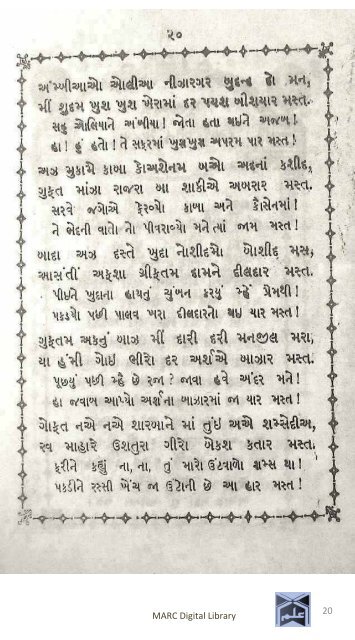 ૨૦
અંબીઆઓ ઓલીઆ નીગારગર બુદન્દ હો મન,
મીં શુદમ ખુશ ખુશ ખેરામાં દર પયશ બીશયાર મસ્ત.
સહુ ઓલિયાને અંબીયા! જોતા હતા થઈને અજબ!
હા! હું હતો! તે સફરમાં ખુશખુશ અપરમ પાર મસ્ત!
અઝ ચુકામે કાબા કોઅશેનમ બઓ અદનાં કશીદ,
ગુફત માંઝા રાજરા બા શાકીએ અબરાર મસ્ત.
સરવે જગોએ ફેરવ્યો કાબા અને કૌસેનમાં!
તે ભેદની વાતો તો પીવરાવ્યો મને ત્યાં જામ મસ્ત!
બાદા અઝ દસ્તે ખુદા નોશીદમો બોશીદ મસ્ત,
આસતીં અફશા ગ્રીફતમ દામને દીલદાર મસ્ત.
પીઈને ખુદાના હાથનું ચુંબન કરયું મ્હેં પ્રેમથી!
પકડયો પછી પાલવ ખરા દીલદારનો થઇ યાર મસ્ત!
ગુફતમ અકનું બાઝ મીં દારી દરી મનજીલ મરા,
યા હંમી ગોઇ ભીરો દર અર્શએ બાઝાર મસ્ત.
પુછયું પછી મ્હેં છે રજા? જાવા હવે અંદર મને!
હા જવાબ આપ્યો અર્શના બાઝારમાં જા યાર મસ્ત!
ગોફત નએ નએ શારબાને માં તુંઇ અએ શમ્સેદીંઅ,
રવ માહારે ઉશતુરા ગીરો બેકશ કતાર મસ્ત.
ફરીને કહ્યું ના, ના, તું મારો ઉંટવાળો શમ્સ થા!
પકડીને રસ્સી ખેંચ જા ઉંટોની છે આ હાર મસ્ત!
MARC Digital Library
20